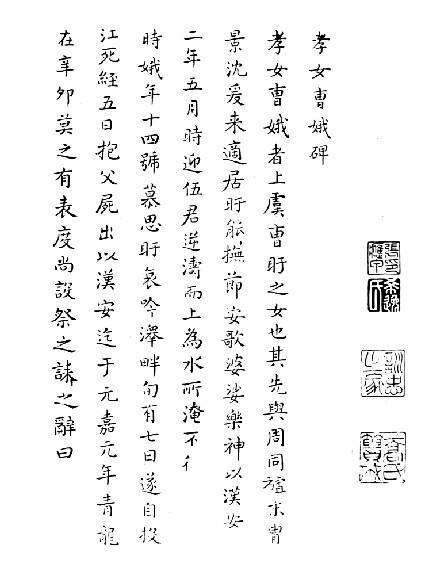 孝女曹娥碑
孝女曹娥者上虞曹盱之女也其先與周同祖末胄
景沈爰来適居盱能撫節安歌婆娑樂神以漢安
二年五月時迎伍君逆濤而上為水所淹不彳
時娥年十四號慕思盱哀吟澤畔旬有七日遂自投
江死經五日抱父屍出以漢安迄于元嘉元年青龍
在辛卯莫之有表度尚設祭之誄之辭曰